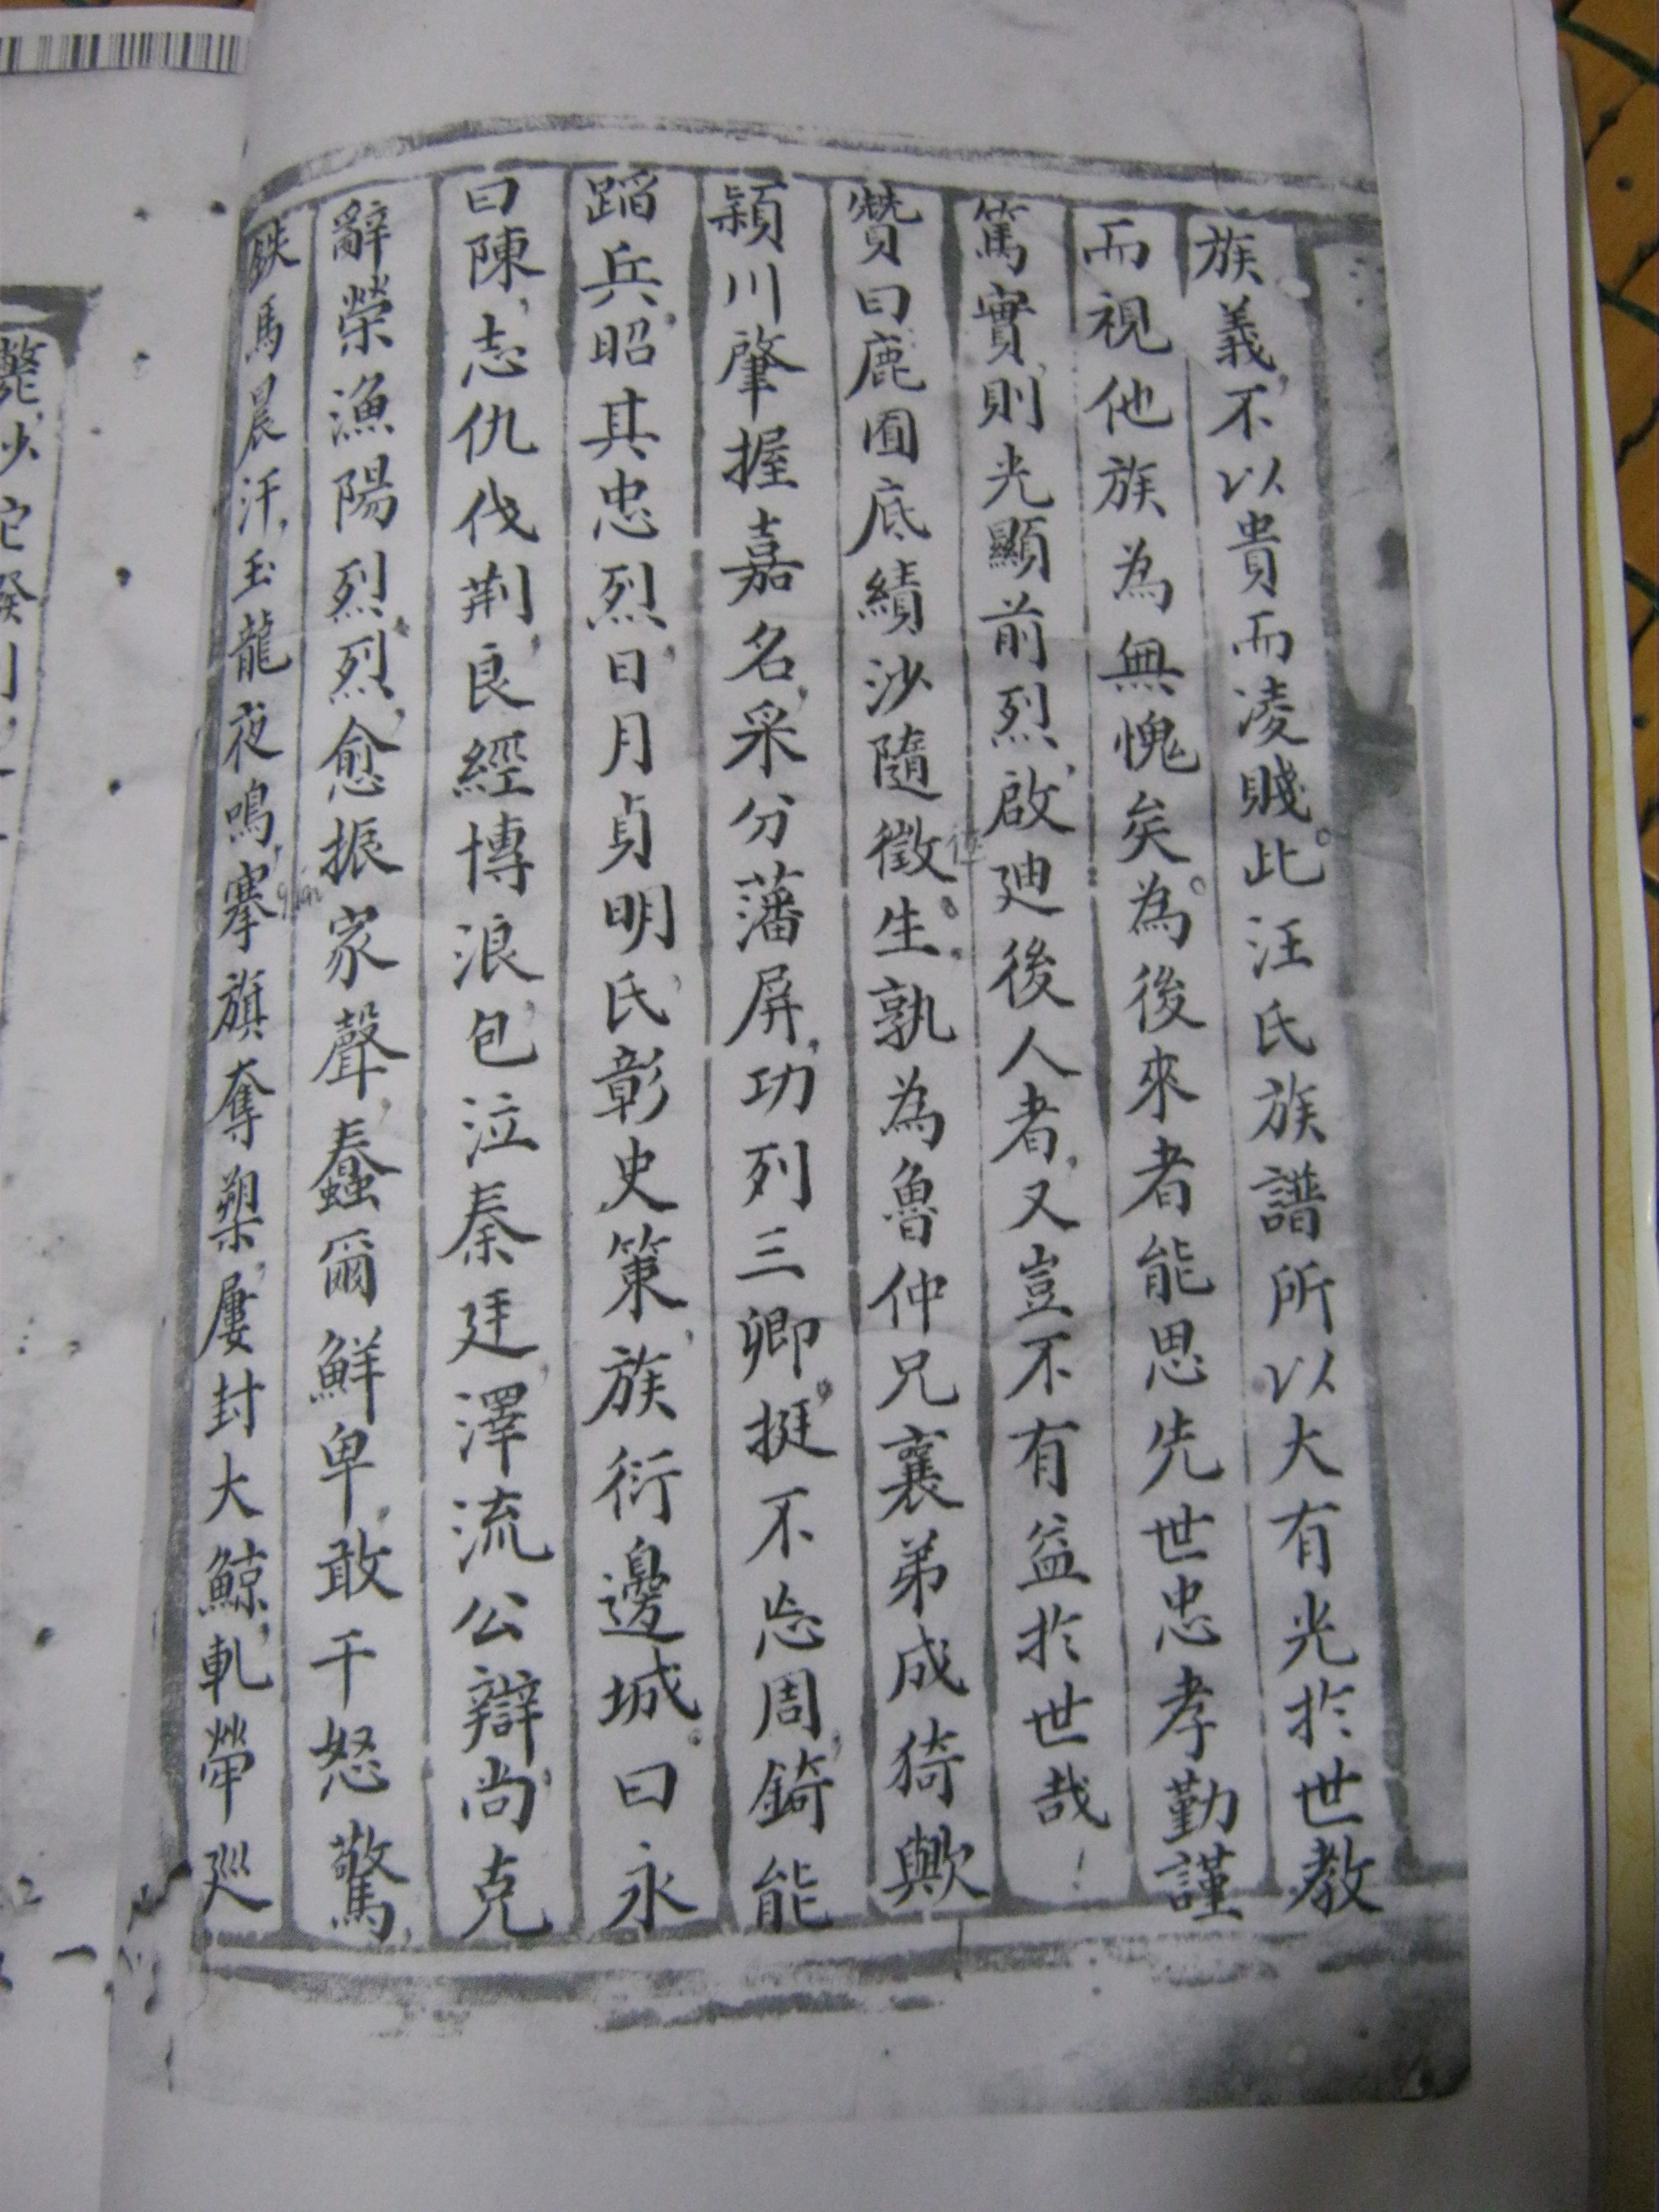 族義不以貴而凌賤此汪氏族譜所以大有光於世教
而視他族為無愧矣為後來者能思先世忠孝勤謹
篤實則光顯前烈啟廸後人者又豈不有益於世哉
贊曰鹿囿底績沙隨徵生孰為魯仲兄襄弟成猗歟
潁川肇握嘉名采分藩屏功列三卿挺不忘周錡能
蹈兵昭其忠烈日月貞明氏彰史策族衍邊城曰永
曰陳志仇伐荆良經博浪包泣秦廷澤流公辯尚克
辭榮漁陽烈烈愈振家聲蠢爾鮮卑敢干怒驚
鉄馬晨汗玉龍夜鳴搴旗奪槊屢封大鯨軋犖巡
qiān